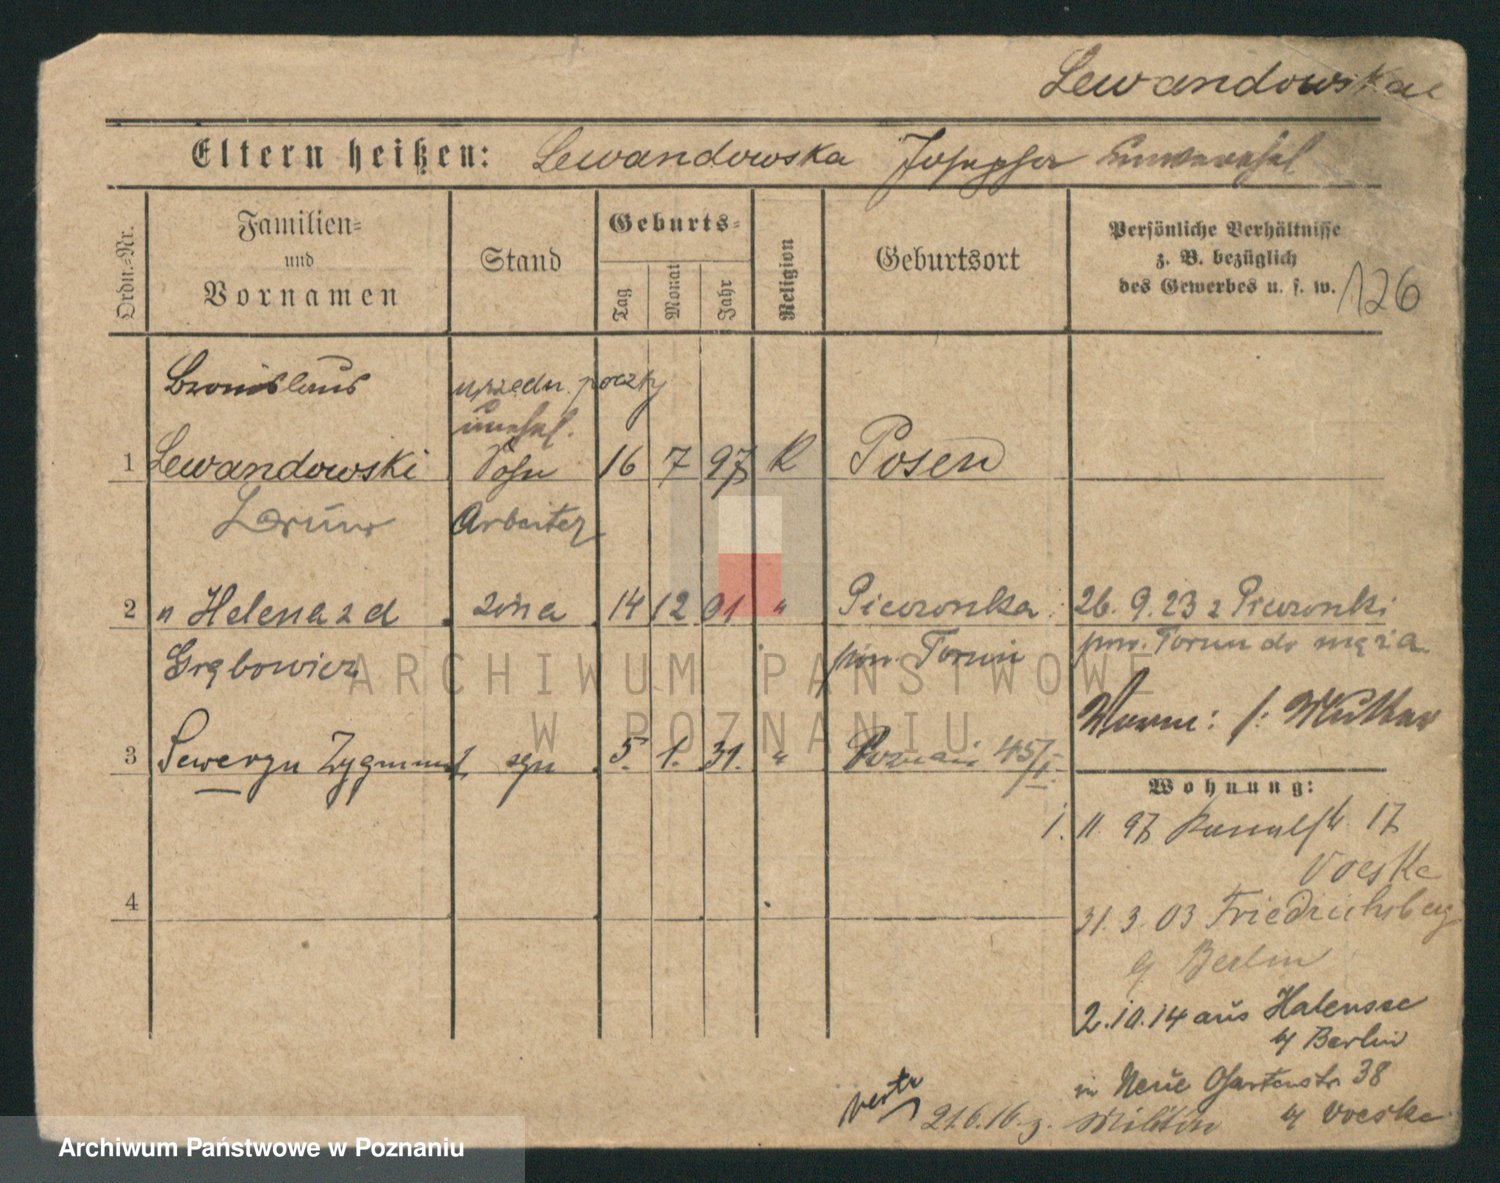 Lewandowska
Eltern heißen: Lewandowska Josepha unverehel
Ordn.=Nr.
Familien=
und
Vornamen
Stand
Geburts=
Tag
Monat
Jahr
Religion
Geburtsort
Persönliche Verhältnisse
z. B. bezüglich
des Gewerbes u. s. w.
126
Bronislaus urzędn. poczty
unehel.
1 Lewandowski Sohn 16 7 97 K Posen
Arbeiter
2 " Helena z d żona 14 12 01 " Piwonka 26. 9. 23 z
Grębowicz pow. Toruń pow. Toruń do męża
f: Mutter
3 Seweryn Zygmunt syn 5. 1. 31. " Poznań 45/I.
Wohnung:
1. 11. 97 Kanalstr 17
Voeske
4
31. 3. 03 Friedrichsberg
b/ Berlin
2.10.14 aus Halensee
b/ Berlin
in Neue Gartenstr 38
b/ Voeske
verte 21.6.16. z. Militär
ARCHIWUM PAŃSTWOWE
W POZNANIU
Archiwum Państwowe w Poznaniu